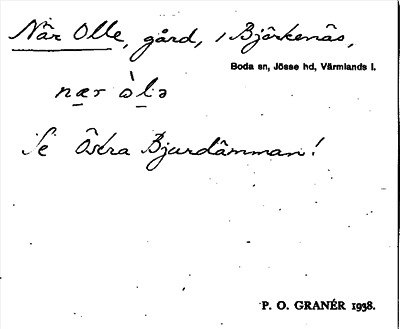 När Olle, gård, i Björkenäs,
Boda sn, Jösse hd, Värmlands l.
nær òlə
Se Östra Bjurdämman!
P. O. GRANÉR 1938.